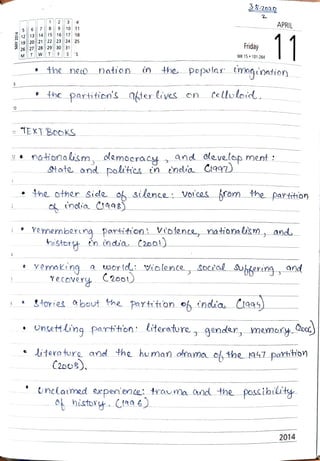 3.8.2020
2
APRIL
11
Friday
WK 15 • 101-264
MAY 2014
1 2 3 4
5 6 7 8 9 10 11
12 13 14 15 16 17 18
19 20 21 22 23 24 25
26 27 28 29 30 31
M T W T F S S
• the new nation in the popular imagination
9
• the partition's after lives on celluloid.
10
11 TEXT BOOKS
12 • nationalism, democracy, and develop ment :
State and politics in india (1997)
• the other side of silence: voices from the partition
of india (1998)
• remembering partition: violence, nationalism, and
history in india (2001)
• remaking a world: violence, social suffering, and
recovery (2001)
• Stories about the partition of india (1994)
• unsettling partition: literature, gender, memory. (2006)
• literature and the human drama of the 1947 partition
(2008).
• Unclaimed experience: trauma and the possibility
of history. (1996)
2014